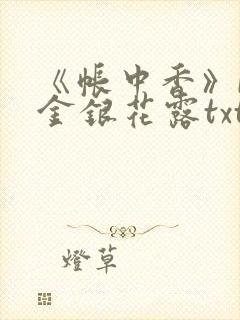 《帳中香》
金銀花露txt
燈草